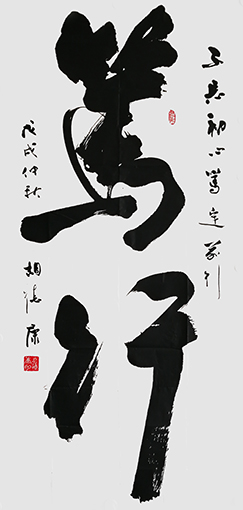 不忘初心篤定前行
篤行
戊戌仲秋
康